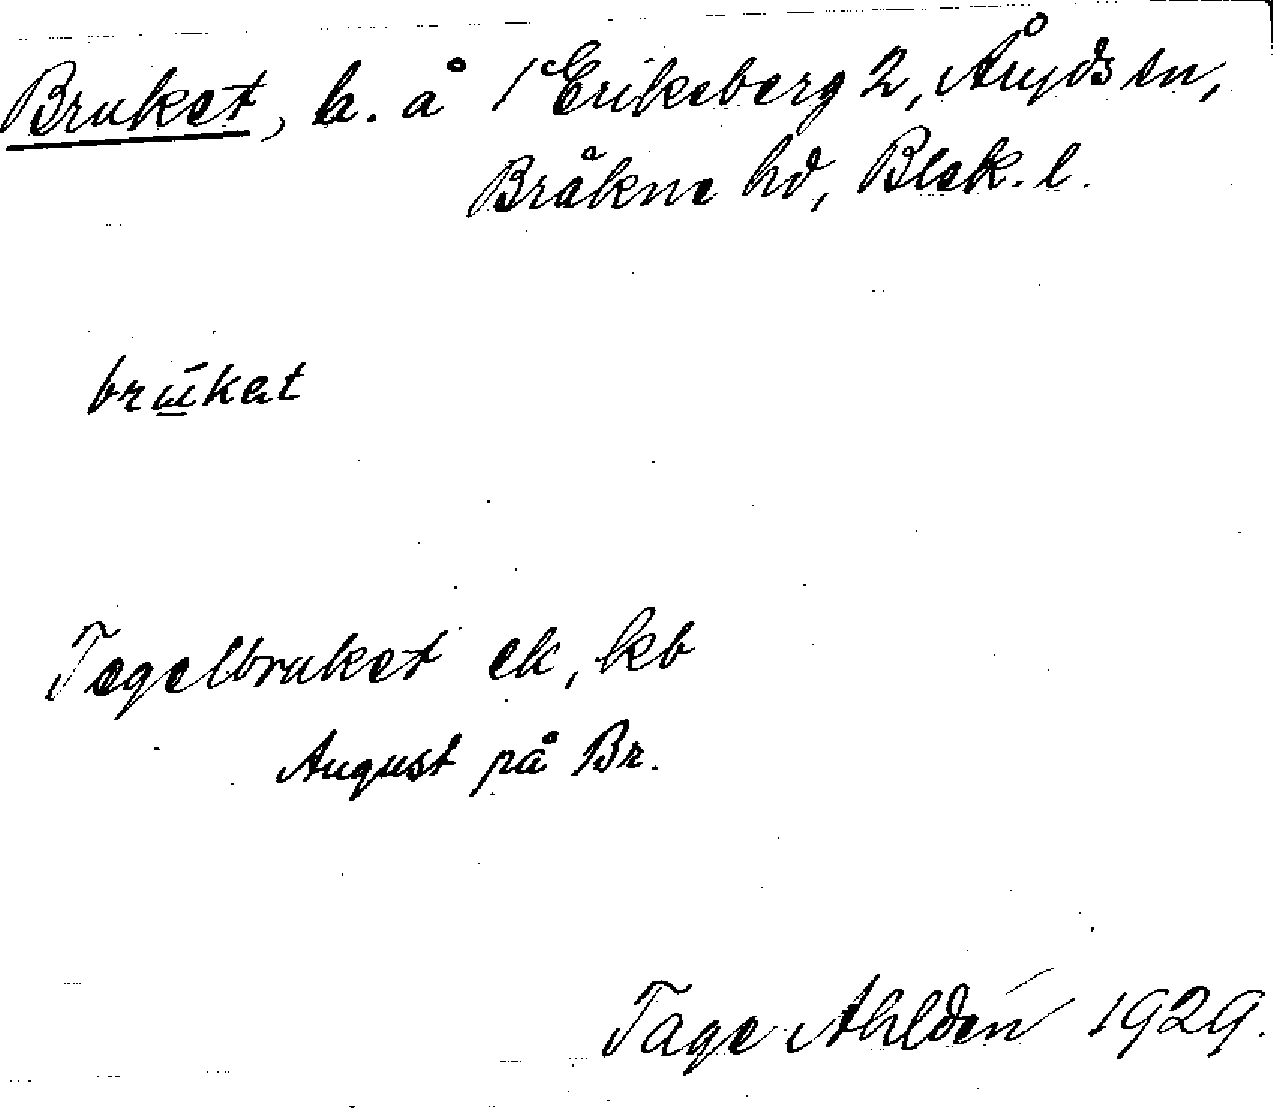 Bruket, h. å 1 Erikeberg 2, Åryds sn,
Bräkne hd, Blek. l.
brūkat
Tegelbruket ek, kb
August på Br.
Tage Ahldén 1929.